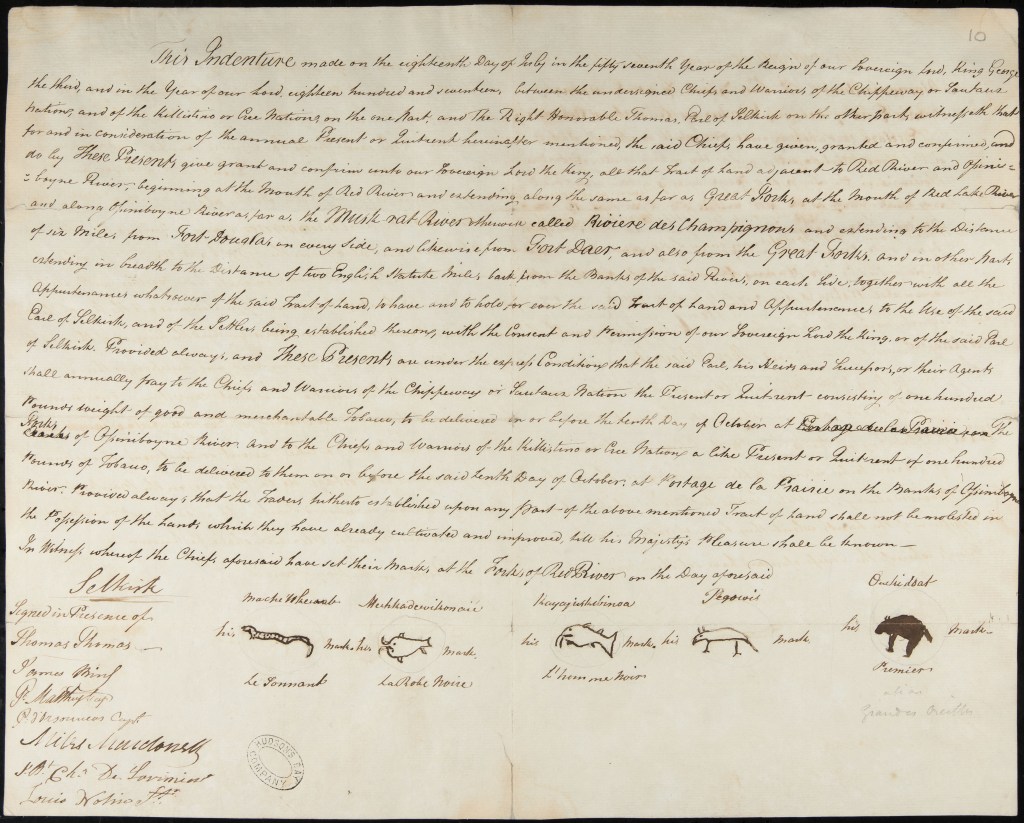 10
This Indenture made on the eighteenth Day of July in the fifty seventh Year of the Reign of our Sovereign Lord, King George
the third, and in the Year of our Lord, eighteen hundred and seventeen, between the undersigned Chiefs and Warriors of the Chippeway or Sautaux
Nation, and of the Killistino or Cree Nation, on the one Part, and The Right Honorable Thomas, Earl of Selkirk on the other part, witnesseth that
for and in consideration of the annual Present or Quitrent hereinafter mentioned, the said Chiefs have given, granted and confirmed, and
do by These Presents give grant and confirm unto our Sovereign Lord the King, all that Tract of Land adjacent to Red River and Ossini-
-boyne River, beginning at the Mouth of Red River and extending along the same as far as Great Forks at the Mouth of Red Lake River
and along Ossiniboyne River as far as the Musk rat River otherwise called Rivière des Champignons and extending to the Distance
of six Miles from Fort Douglas on every Side, and likewise from Fort Daer, and also from the Great Forks, and in other Parts
extending in breadth to the Distance of two English Statute Miles back from the Banks of the said Rivers, on each Side, together with all the
Appurtenances whatsoever of the said Tract of Land, to have and to hold for ever the said Tract of Land and Appurtenances to the Use of the said
Earl of Selkirk, and of the Settlers being established thereon, with the Consent and Permission of our Sovereign Lord the King, or of the said Earl
of Selkirk. Provided always, and These Presents are under the express Condition that the said Earl, his Heirs and Successors, or their Agents
shall annually pay to the Chiefs and Warriors of the Chippeway or Sautaux Nation the Present or Quit rent consisting of one hundred
Pounds weight of good and merchantable Tobacco, to be delivered on or before the tenth Day of October at Portage de la Prairie, on The
Forks of Ossiniboyne River. And to the Chiefs and Warriors of the Killistino or Cree Nation a like Present or Quit rent of one hundred
Pounds of Tobacco, to be delivered to them on or before the said tenth Day of October, at Portage de la Prairie on the Banks of Ossiniboyne
River. Provided always, that the Traders hitherto established upon any part of the above mentioned Tract of Land shall not be molested in
the Possession of the Lands which they have already cultivated and improved, till his Majesty's Pleasure shall be known—
In Witness whereof the Chiefs aforesaid have set their Marks, at the Forks of Red River on the Day aforesaid
Selkirk
Signed in Presence of
Thomas Thomas
James Bird
Miles Macdonell
Louis Nolin
Mechkadewikonaie Kayajieskebinoa Pegowis Ouckidoat
his mark his mark his mark his mark his mark
Le Sonnant La Robe Noire L'homme Noir Premier
alias
Grandes Oreilles
HUDSON'S BAY
COMPANY